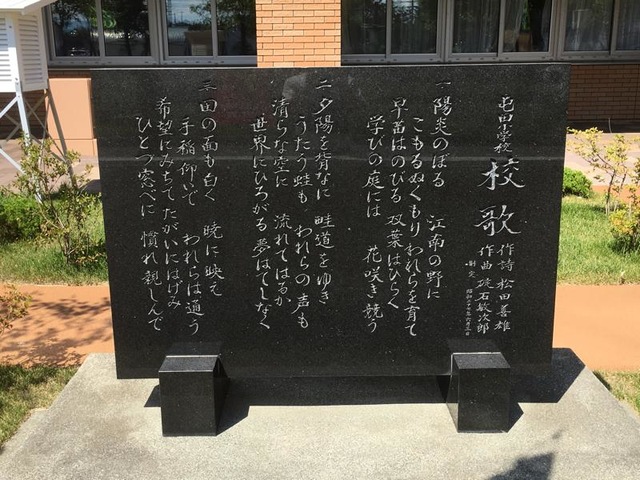 屯田小學校
校歌
作詩 松田喜雄
作曲 硴石敏次郎
制定 昭和
一 陽炎のぼる 江南の野に
こもるぬくもり われらを育て
早苗はのびる 双葉はひらく
学びの庭には 花咲き競う
二 夕陽を背なに 畦道をゆき
うたう蛙も われらの声も
清らな空に 流れてはるか
世界にひろがる 夢はてしなく
三 田の面も白く 暁に映え
手稲仰いで われらは通う
希望にみちて たがいにはげみ
ひとつ窓べに 慣れ親しんで